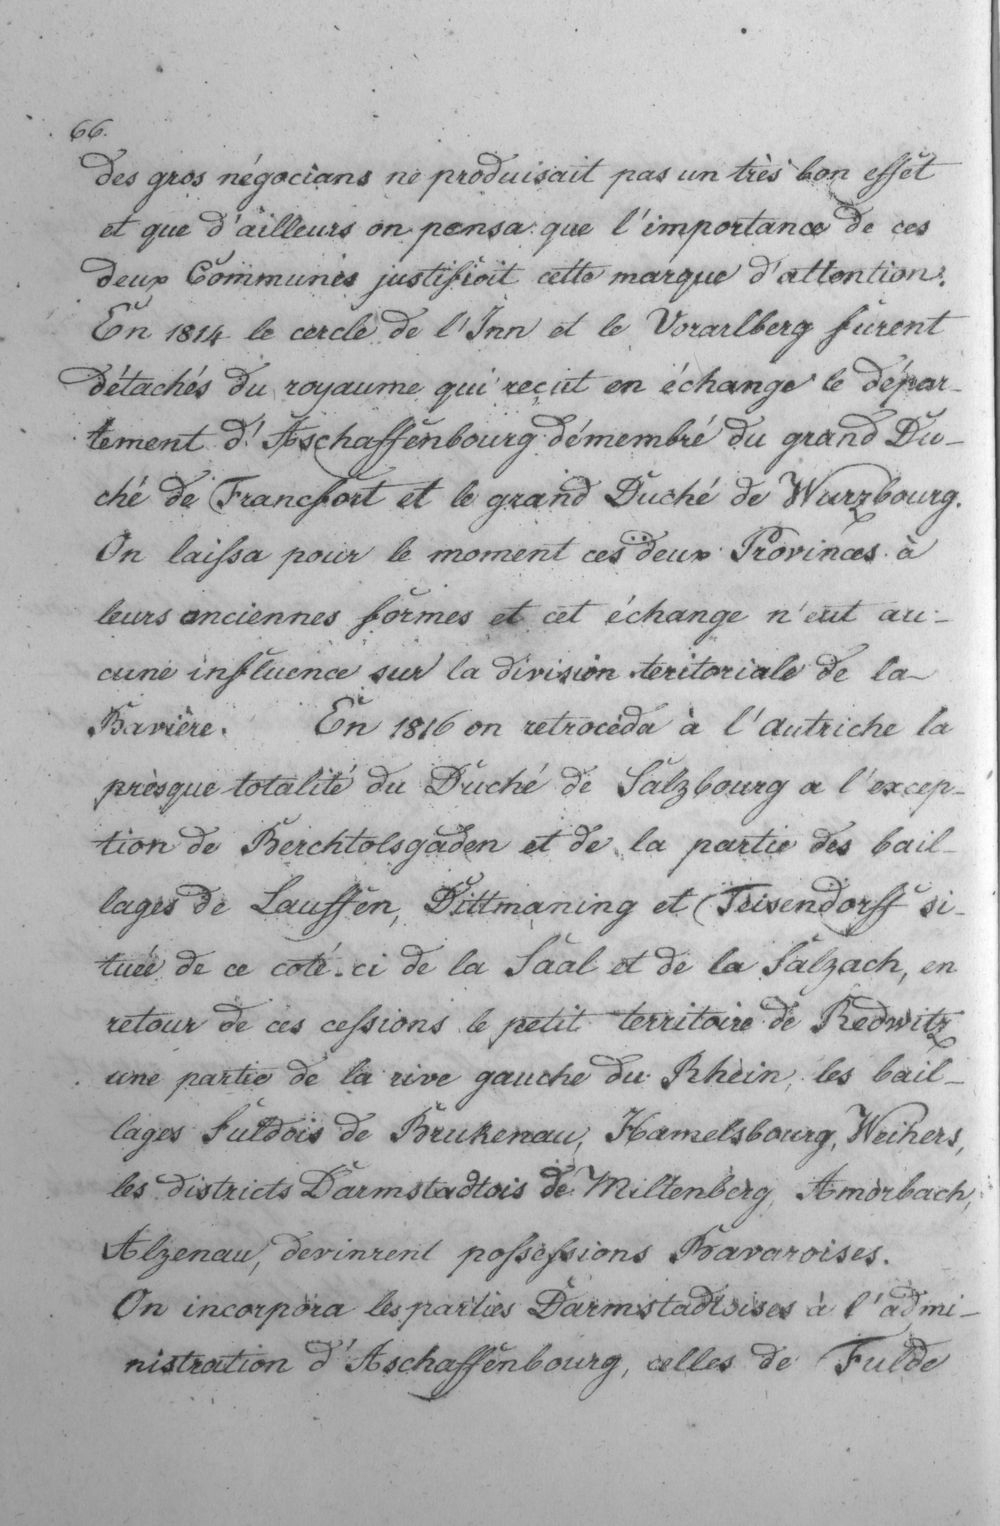 66.
des gros négocians ne produisait pas un très bon effet
et que d'ailleurs on pensa que l'importance de ces
deux Communes justifioit cette marque d'attention.
En 1814 le cercle de l'Inn et le Vorarlberg furent
détachés du royaume qui reçut en échange le dépar-
tement d'Aschaffenbourg démembré du grand Du-
ché de Francfort et le grand Duché de Wurzbourg.
On laissa pour le moment ces deux Provinces à
leurs anciennes formes et cet échange n'eut au-
cune influence sur la division teritoriale de la
Bavière. En 1816 on retroceda à l'Autriche la
prèsque totalité du Duché de Salzbourg a l'excep-
tion de Berchtolsgaden et de la partie des bail-
lages de Lauffen, Dittmaning et Teisendorff si-
tuée de ce coté-ci de la Saal et de la Salzach, en
retour de ces cessions le petit territoire de Redwitz
une partie de la rive gauche du Rhein, les bail-
lages Fuldois de Brukenau, Hamelsbourg, Weihers,
les districts Darmstadtois de Miltenberg, Amorbach,
Alzenau, devinrent possessions Bavaroises.
On incorpora les parties Darmstadtoises à l'admi-
nistration d'Aschaffenbourg, celles de Fulde